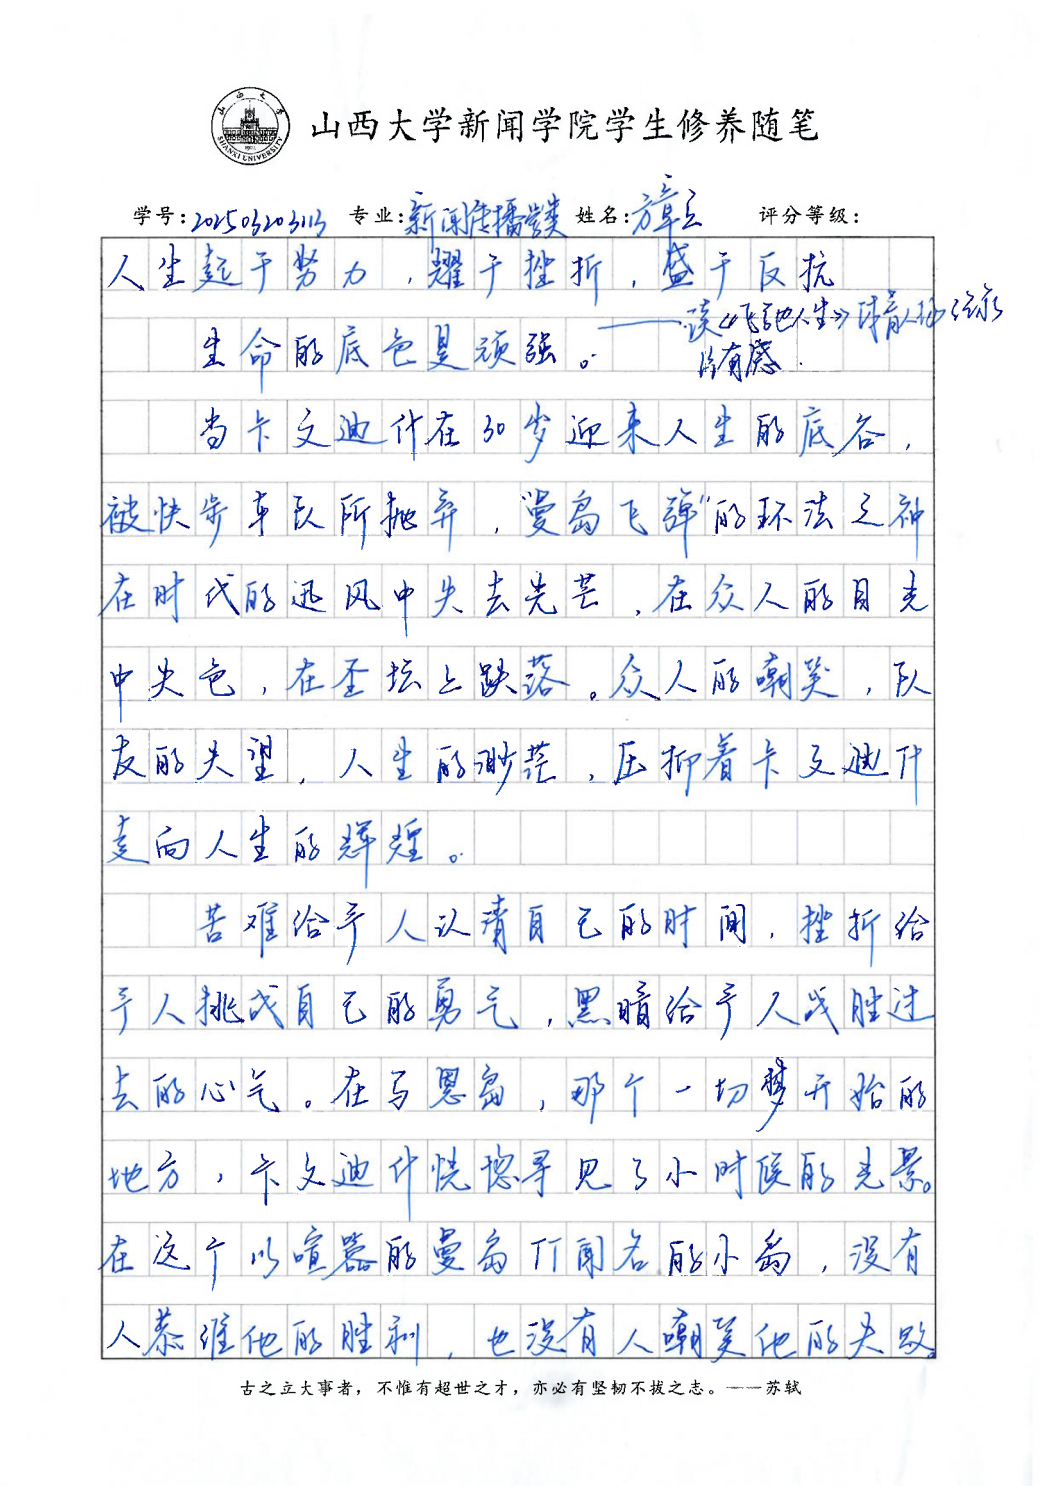 山西大学新闻学院学生修养随笔
山西大学
SHANXI UNIVERSITY
学号:202503203113 专业:新闻传播学类 姓名:方章立 评分等级:
人生起于努力，耀于挫折，盛于反抗
——读《飞驰人生》
有感
生命的底色是顽强。
当卡文迪什在30岁迎来人生的底谷，
被快步车队所抛弃，“曼岛飞弹”的环法之神
在时代的迅风中失去光芒，在众人的目光
中失色，在圣坛上跌落。众人的嘲笑，队
友的失望，人生的渺茫，压抑着卡文迪什
走向人生的辉煌。
苦难给予人认清自己的时间，挫折给
予人挑战自己的勇气，黑暗给予人战胜过
去的心气。在马恩岛，那个一切梦开始的
地方，卡文迪什恍惚寻见了小时候的光景。
在这个以喧嚣的曼岛TT闻名的小岛，没有
人恭维他的胜利，也没有人嘲笑他的失败。
古之立大事者，不惟有超世之才，亦必有坚韧不拔之志。——苏轼